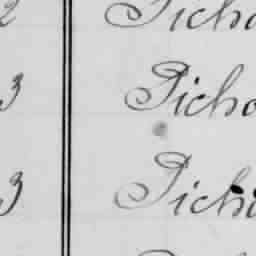 2 Picho
3 Picho
3 Pichi